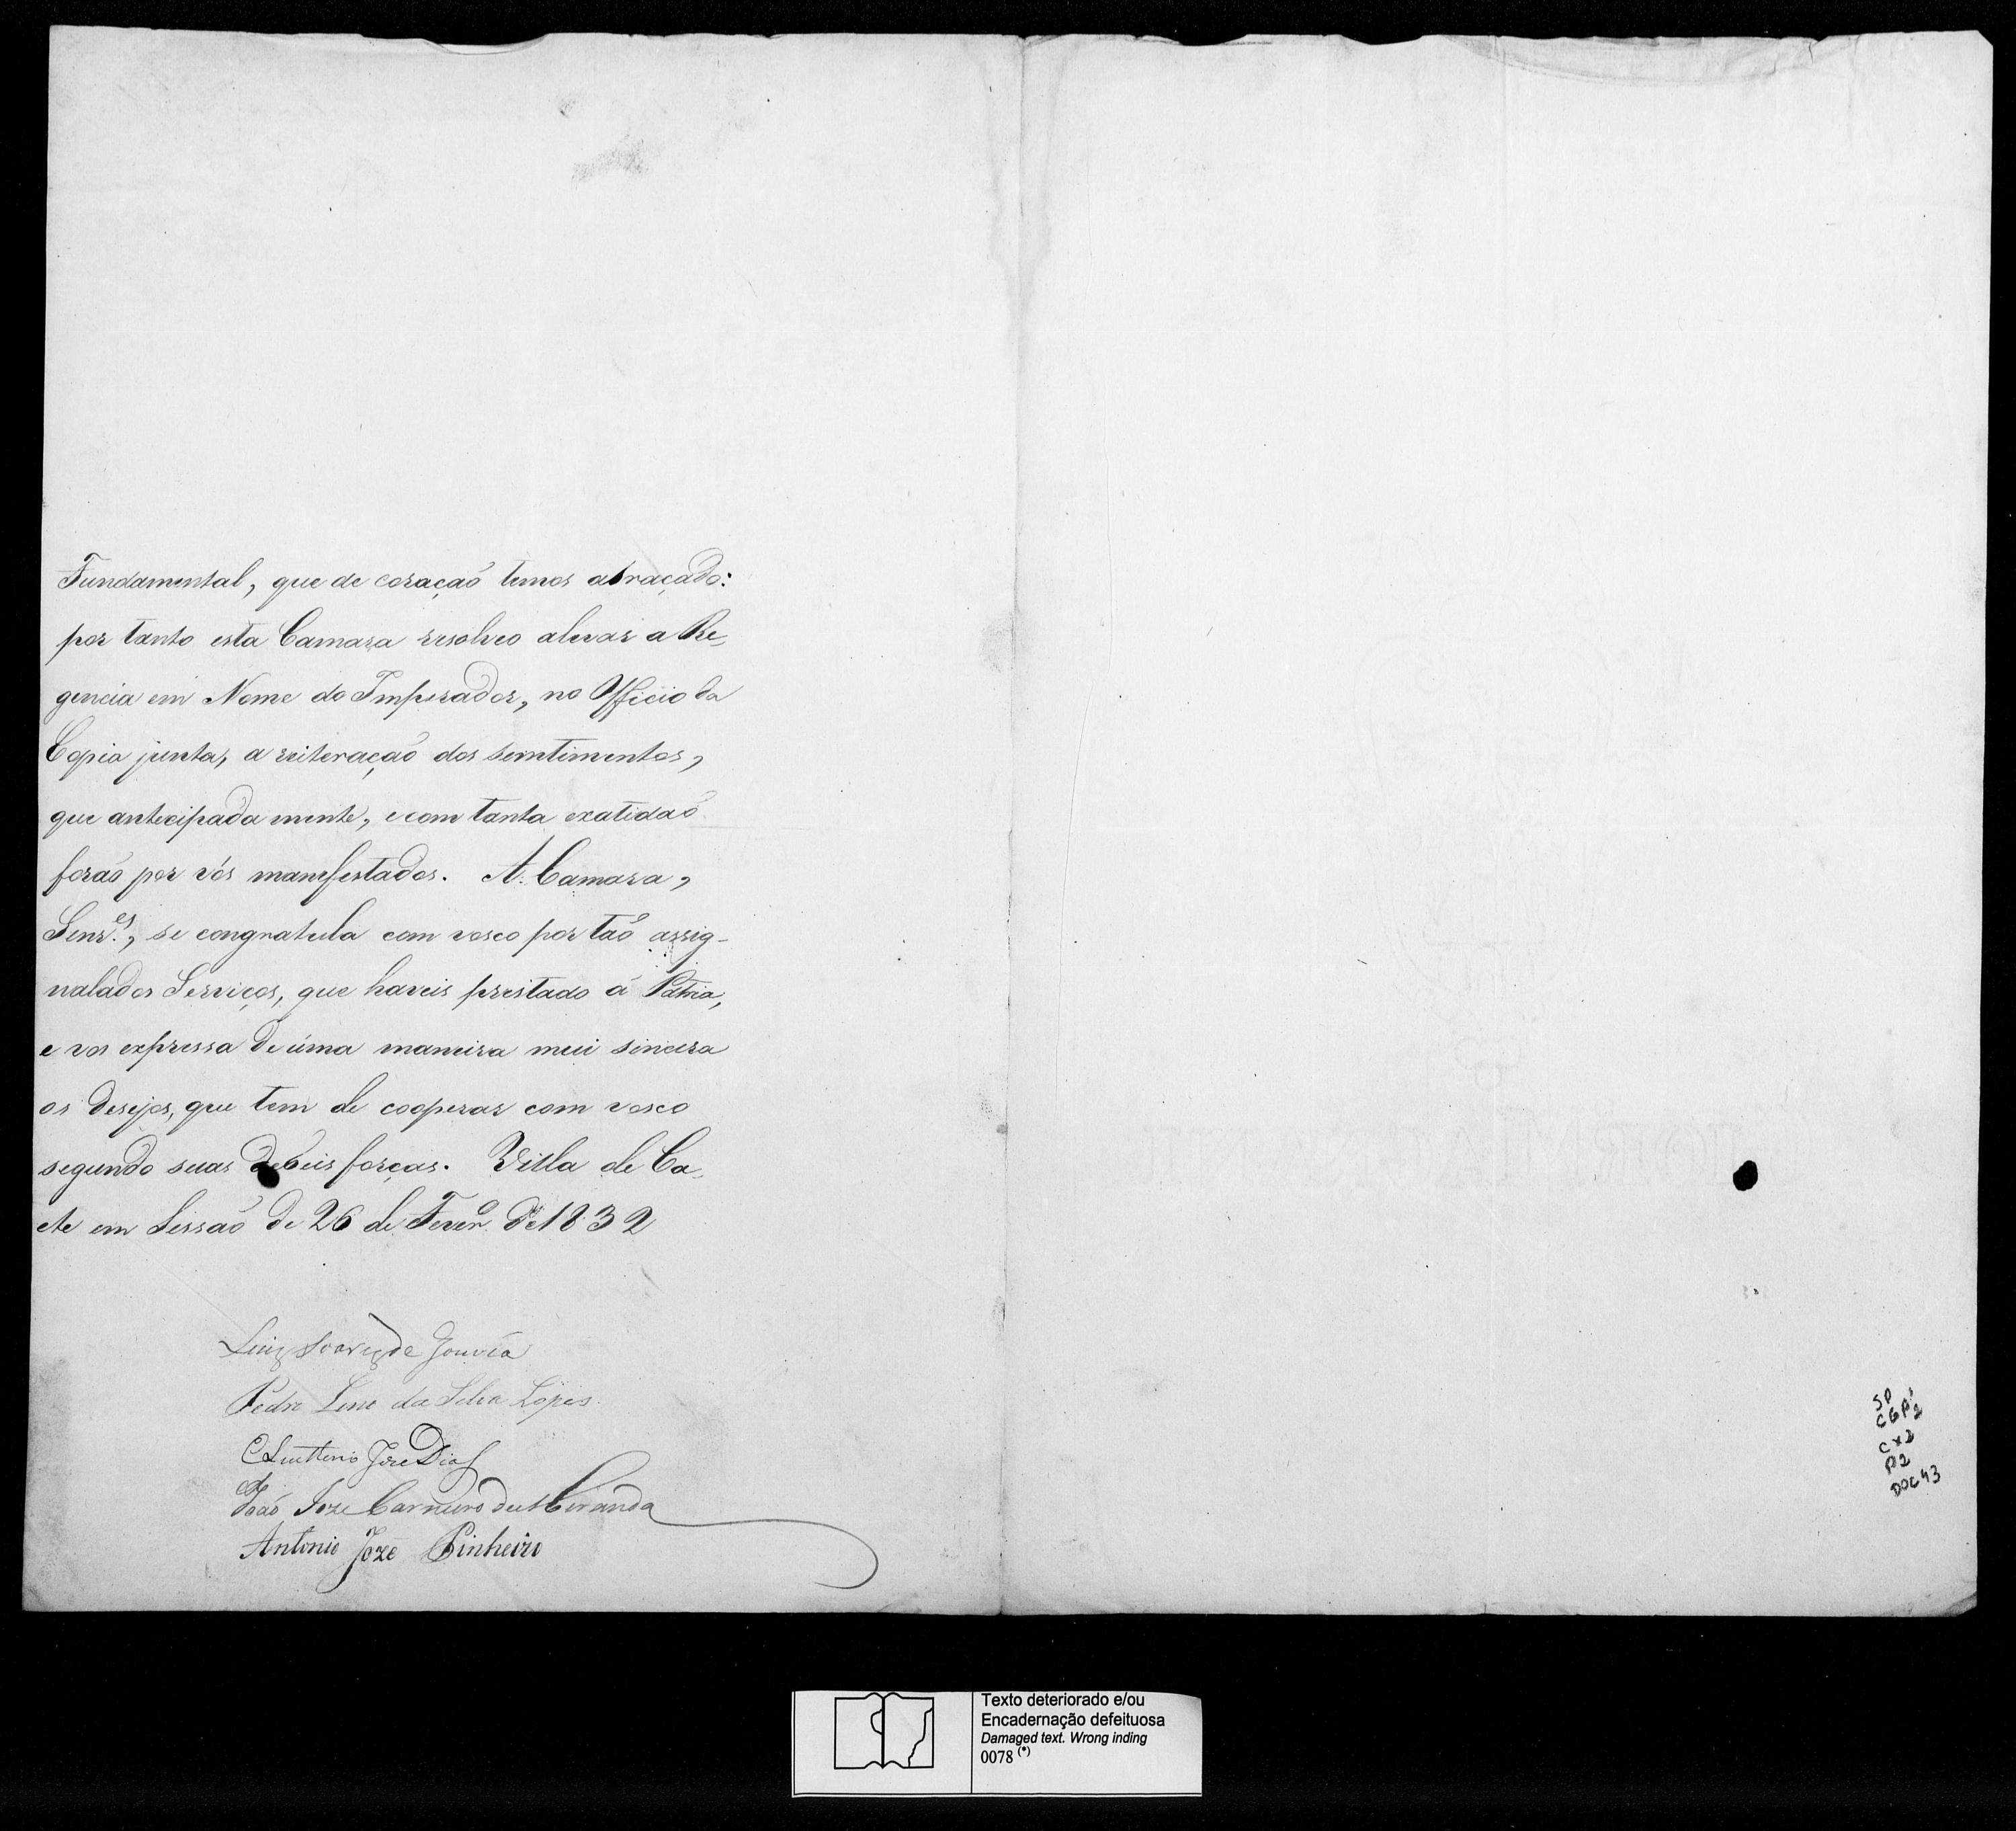 Fundamental, que de coração temos abraçado:
por tanto esta Camara resolveo alevar a Re-
gencia em Nome do Imperador, no Officio da
Copia junta, a reiteração dos sentimentos,
que antecipada mente, e com tanta exatidaõ
foraõ por vós manifestados. A Camara,
Senr.es, se congratula com vosco por taõ assig-
nalados Serviços, que haveis prestado á Patria,
e vos expressa de úma maneira mui sincera
os desejos, que tem de cooperar com vosco
segundo suas debeis forças. Villa de Ca-
ete em Sessaõ de 26 de Feverº de 1832
Luiz Soares de Gouvêa
Pedro Lino da Silva Lopes.
Eleutterio Joze Dias
Joaõ Joze Carneiro de Miranda
Antonio Joze Pinheiro
SP
CGP 2
CX2
P2
DOC 43
Texto deteriorado e/ou
Encadernação defeituosa
Damaged text. Wrong inding
0078 (*)